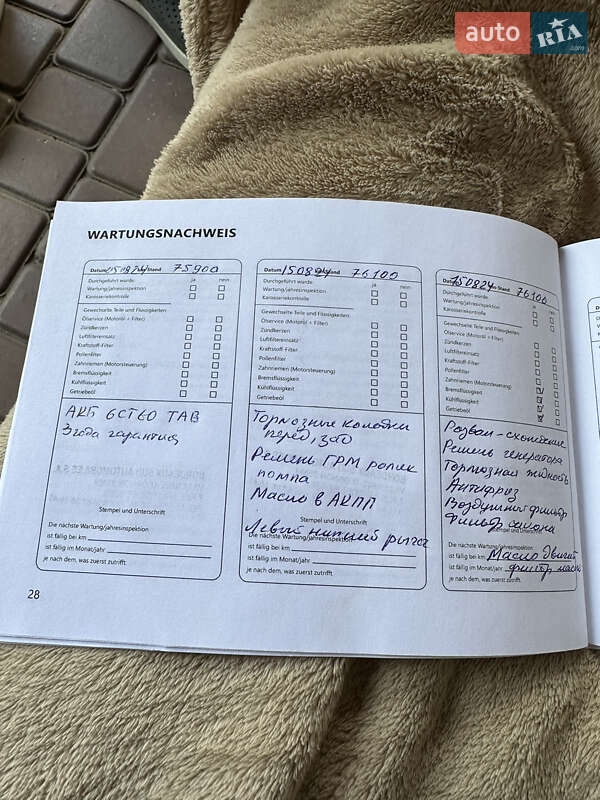 auto RIA.com
WARTUNGSNACHWEIS
Datum 150824 km-Stand 75900
Durchgeführt wurde: ja nein
Wartung/Jahresinspektion
Karosseriekontrolle
Gewechselte Teile und Flüssigkeiten:
Ölservice (Motoröl + Filter)
Zündkerzen
Luftfiltereinsatz
Kraftstoff-Filter
Pollenfilter
Zahnriemen (Motorsteuerung)
Bremsflüssigkeit
Kühlflüssigkeit
Getriebeöl
АКБ 6СТ60 TAB
3 года гарантия
Stempel und Unterschrift
Die nächste Wartung/Jahresinspektion
ist fällig bei km
ist fällig im Monat/Jahr
je nach dem, was zuerst zutrifft.
Datum 150824 Stand 76100
Durchgeführt wurde: ja nein
Wartung/Jahresinspektion
Karosseriekontrolle
Gewechselte Teile und Flüssigkeiten:
Ölservice (Motoröl + Filter)
Zündkerzen
Luftfiltereinsatz
Kraftstoff-Filter
Pollenfilter
Zahnriemen (Motorsteuerung)
Bremsflüssigkeit
Kühlflüssigkeit
Getriebeöl
Тормозные колодки
перед, зад
Ремень ГРМ ролик
помпа
Масло в АКПП
Stempel und Unterschrift
Левый нижний рычаг
Die nächste Wartung/Jahresinspektion
ist fällig bei km
ist fällig im Monat/Jahr
je nach dem, was zuerst zutrifft.
150824 km-Stand 76100
Durchgeführt wurde: ja nein
Wartung/Jahresinspektion
Karosseriekontrolle
Gewechselte Teile und Flüssigkeiten:
Ölservice (Motoröl + Filter)
Zündkerzen
Luftfiltereinsatz
Kraftstoff-Filter
Pollenfilter
Zahnriemen (Motorsteuerung)
Bremsflüssigkeit
Kühlflüssigkeit
Getriebeöl
Развал-схождение
Ремень генератора
Тормозная жидкость
Антифриз
Воздушный фильтр
Фильтр салона
Stempel und Unterschrift
Die nächste Wartung/Jahresinspektion
ist fällig bei km Масло Двигат
ist fällig im Monat/Jahr фильтр масл
je nach dem, was zuerst zutrifft.
28